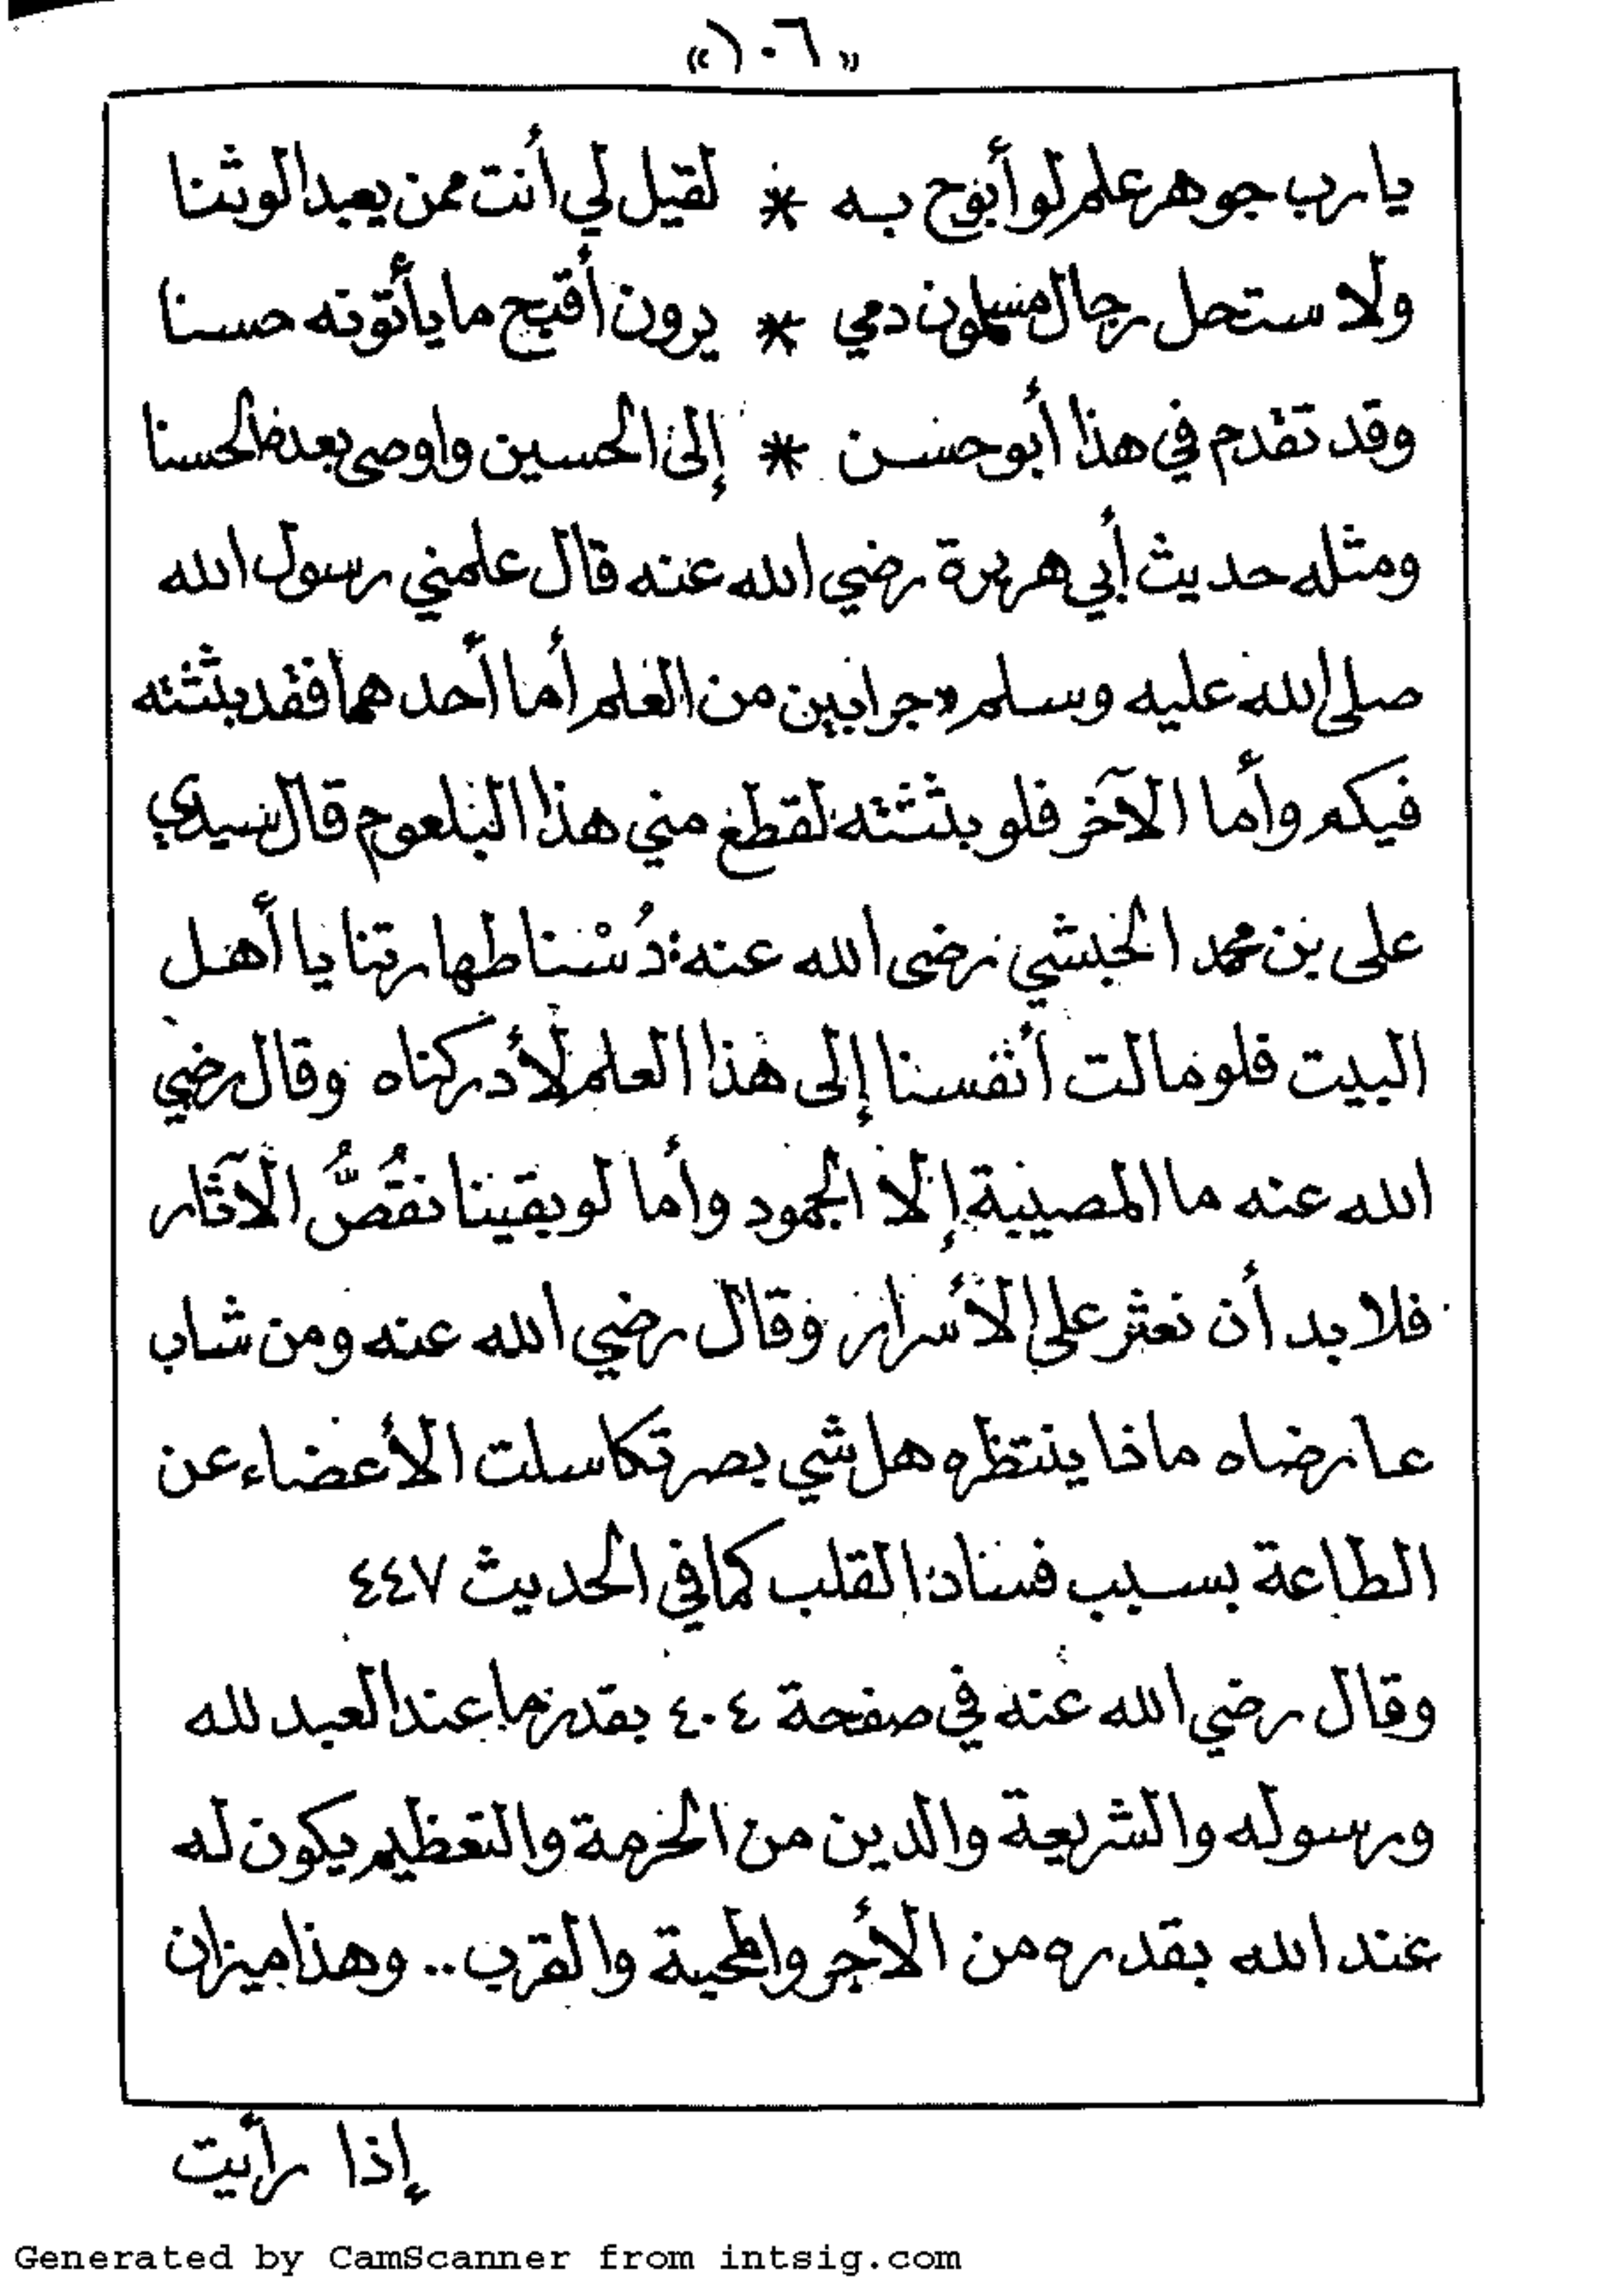 «١٠٦»
يارب جوهر علم لو أبوح به * لقيل لي أنت ممن يعبد الوثنا
ولاستحل رجال مسلمون دمي * يرون أقبح ما يأتونه حسنا
وقد تقدم في هذا أبو حسن * إلى الحسين واوصى بعده الحسنا
ومثله حديث أبي هريرة رضي الله عنه قال علمني رسول الله
صلى الله عليه وسلم «جرابين من العلم أما أحدهما فقد بثثته
فيكم وأما الآخر فلو بثثته لقطع مني هذا البلعوم قال سيدي
علی بن محمد الحبشي رضى الله عنه: دُسْنا طهارتنا يا أهل
البيت فلو مالت أنفسنا إلى هذا العلم لأدركناه وقال رضي
الله عنه ما المصيبة إلا الجمود وأما لو بقينا نقُصُّ الآثار
فلا بد أن نعثر على الأسرار وقال رضي الله عنه ومن شاب
عارضاه ماذا ينتظره هل شي بصر تكاسلت الأعضاء عن
الطاعة بسبب فساد القلب كما في الحديث ٤٤٧
وقال رضي الله عنه في صفحة ٤٠٤ بقدر ما عند العبد لله
ورسوله والشريعة والدين من الحرمة والتعظيم يكون له
عند الله بقدره من الأجر والمحبة والقرب .. وهذا ميزان
إذا رأيت
Generated by CamScanner from intsig.com